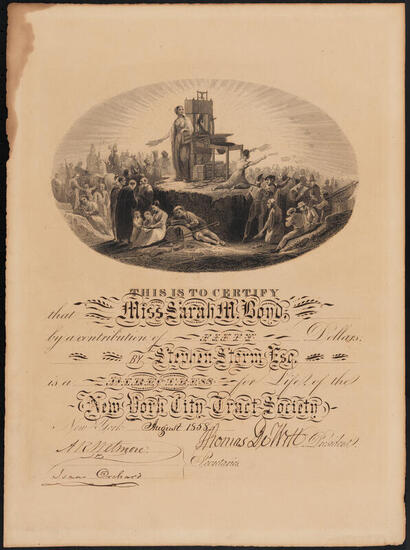 THIS IS TO CERTIFY
that Miss Sarah M. Boyd,
by a contribution of FIFTY Dollars,
BY Stephen Storm, Esq.
is a DIRECTRESS for Life, of the
New York City Tract Society
New York August 1858 Thomas De Witt President
A R Wetmore
Secretaries
Isaac Orchard